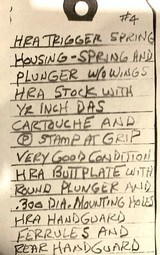 #4
HRA TRIGGER SPRING
HOUSING - SPRING AND
PLUNGER W/O WINGS
HRA STOCK WITH
1/2 INCH DAS
CARTOUCHE AND
Ⓟ STAMP AT GRIP
VERY GOOD CONDITION
HRA BUTTPLATE WITH
ROUND PLUNGER AND
.300 DIA. MOUNTING HOLES
HRA HANDGUARD
FERRULES AND
REAR HANDGUARD